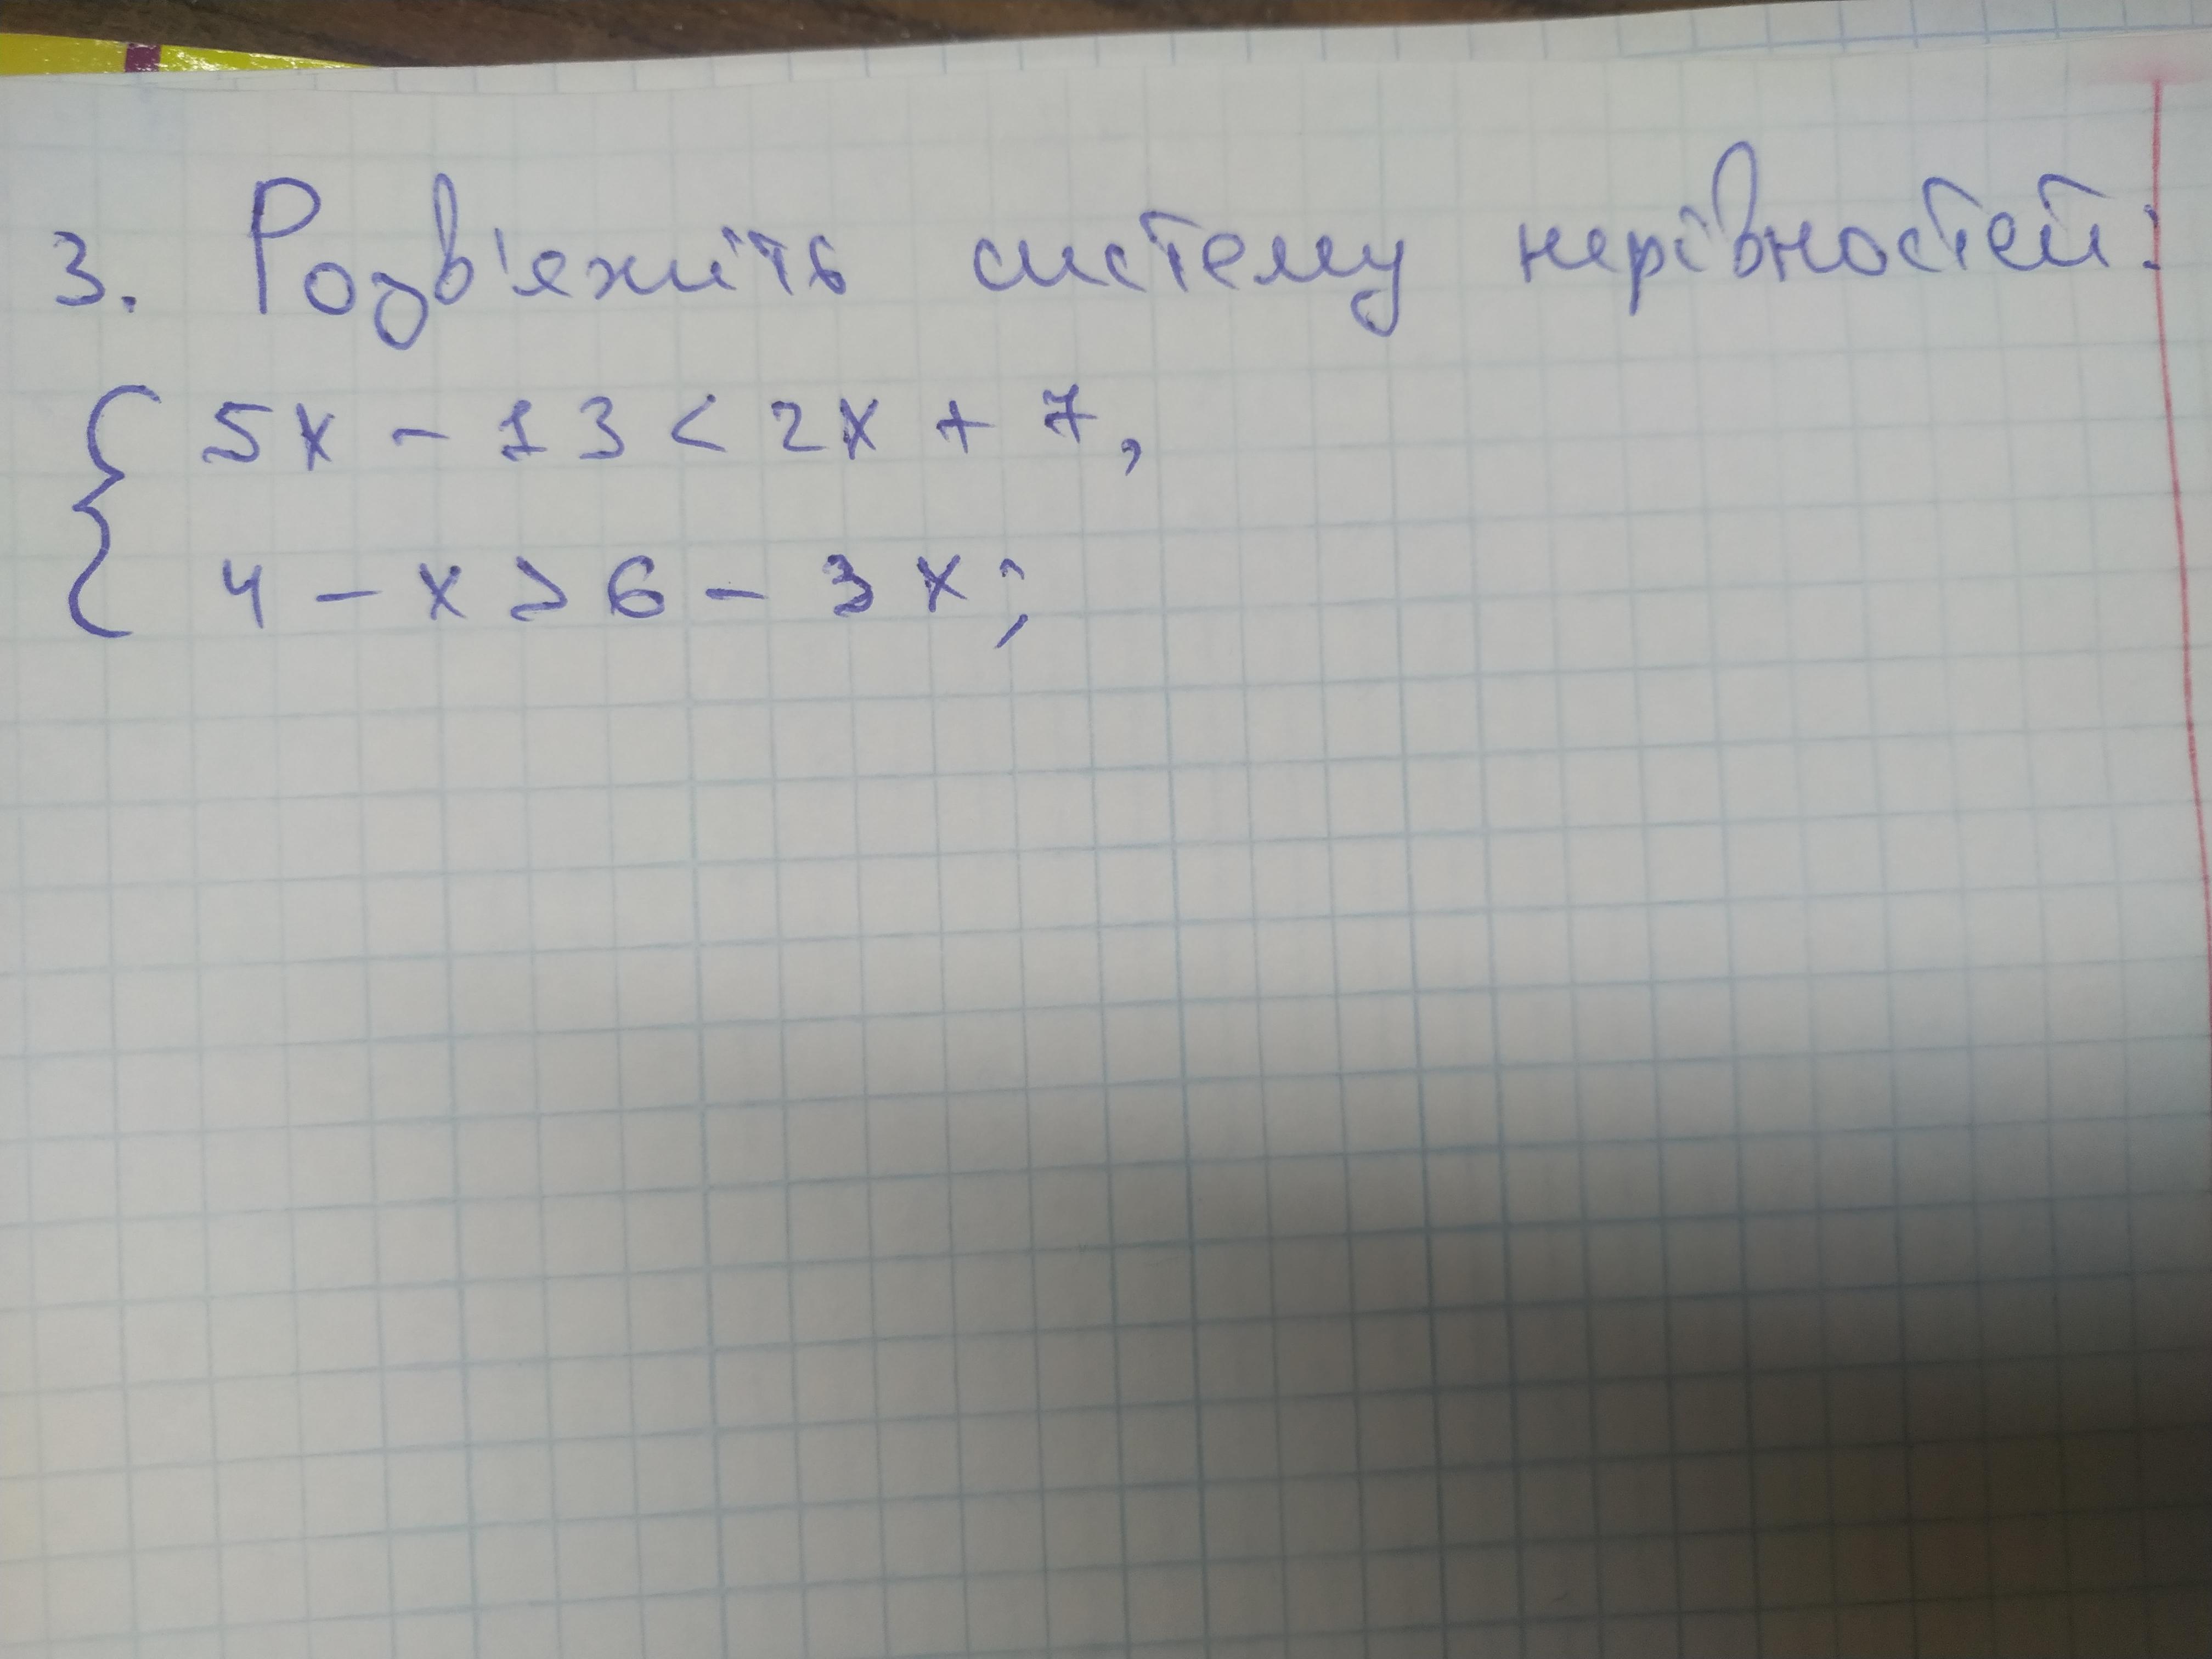 3. Розв'яжіть систему нерівностей:
{ 5x - 13 < 2x + 7,
4 - x ≥ 6 - 3x;